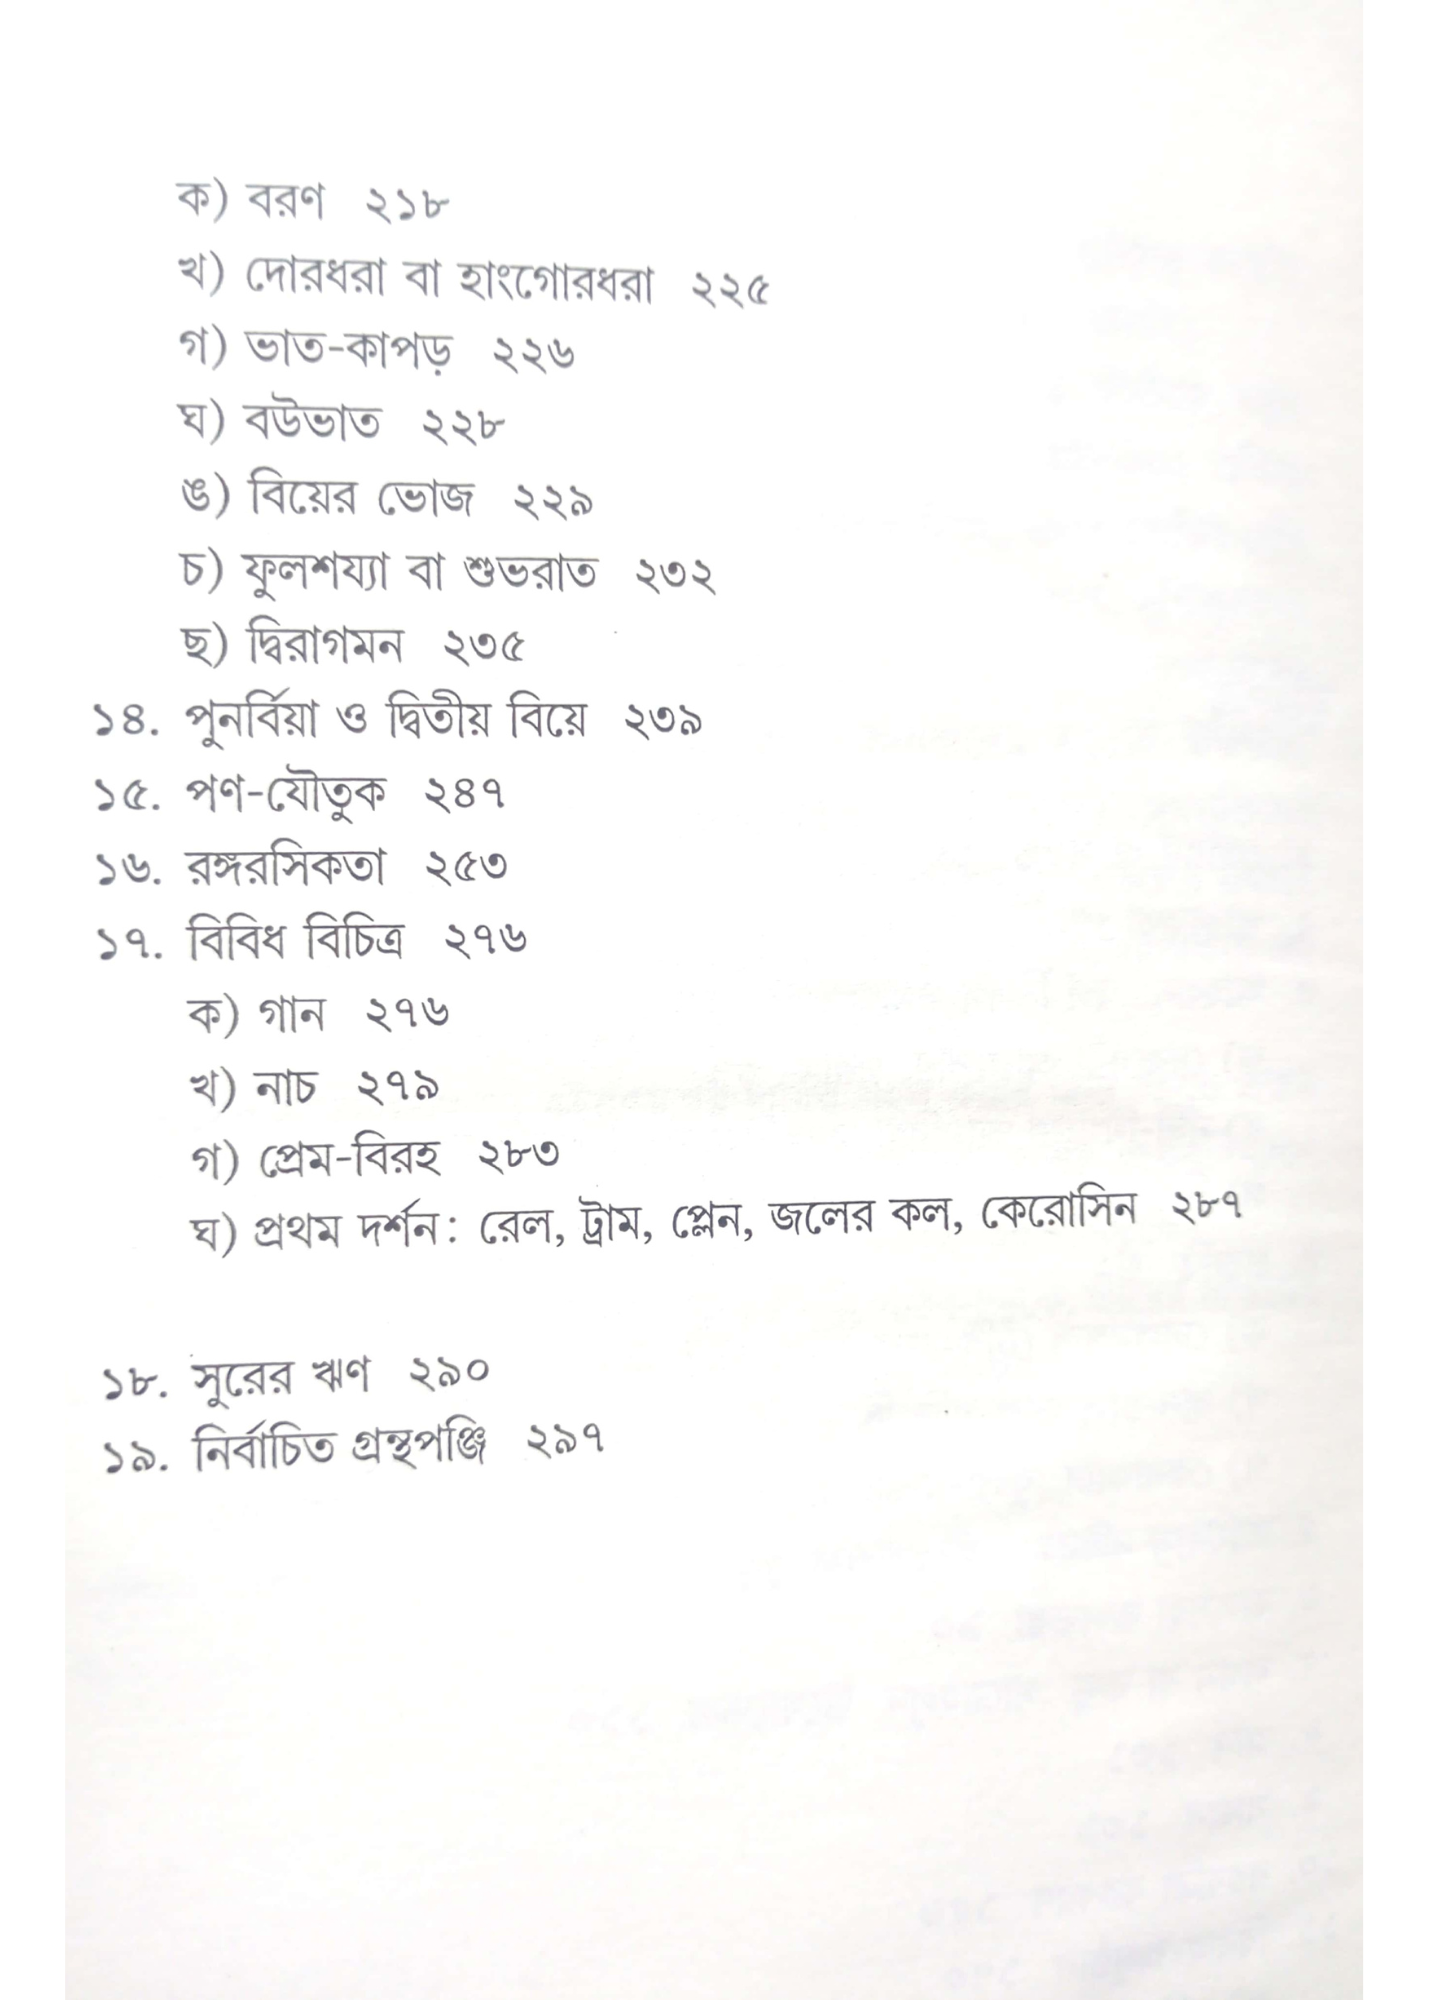 ক) বরণ ২১৮
খ) দোরধরা বা হাংগোরধরা ২২৫
গ) ভাত-কাপড় ২২৬
ঘ) বউভাত ২২৮
ঙ) বিয়ের ভোজ ২২৯
চ) ফুলশয্যা বা শুভরাত ২৩২
ছ) দ্বিরাগমন ২৩৫
১৪. পুনর্বিয়া ও দ্বিতীয় বিয়ে ২৩৯
১৫. পণ-যৌতুক ২৪৭
১৬. রঙ্গরসিকতা ২৫৩
১৭. বিবিধ বিচিত্র ২৭৬
ক) গান ২৭৬
খ) নাচ ২৭৯
গ) প্রেম-বিরহ ২৮৩
ঘ) প্রথম দর্শন: রেল, ট্রাম, প্লেন, জলের কল, কেরোসিন ২৮৭
১৮. সুরের ঋণ ২৯০
১৯. নির্বাচিত গ্রন্থপঞ্জি ২৯৭